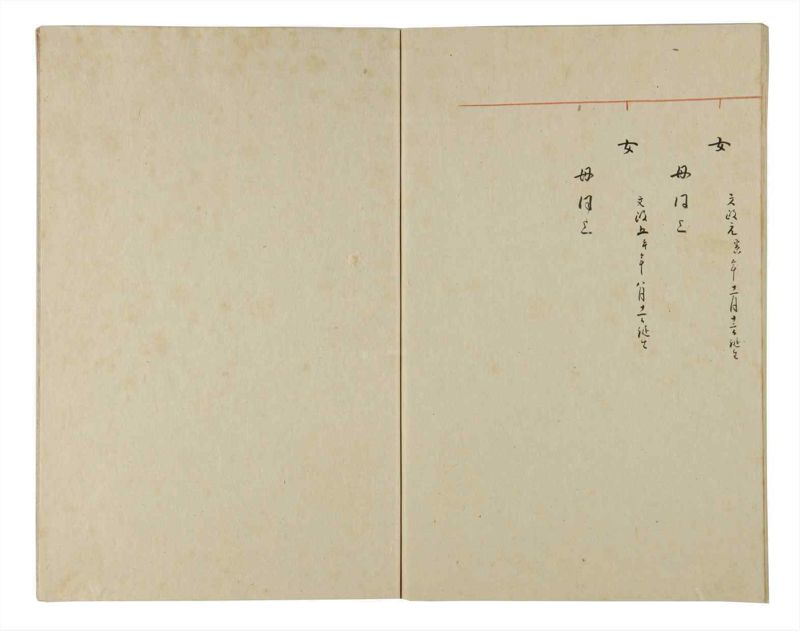 女
文政元寅年 月 日誕生
母同上
女
文政五午年八月 日誕生
母同上